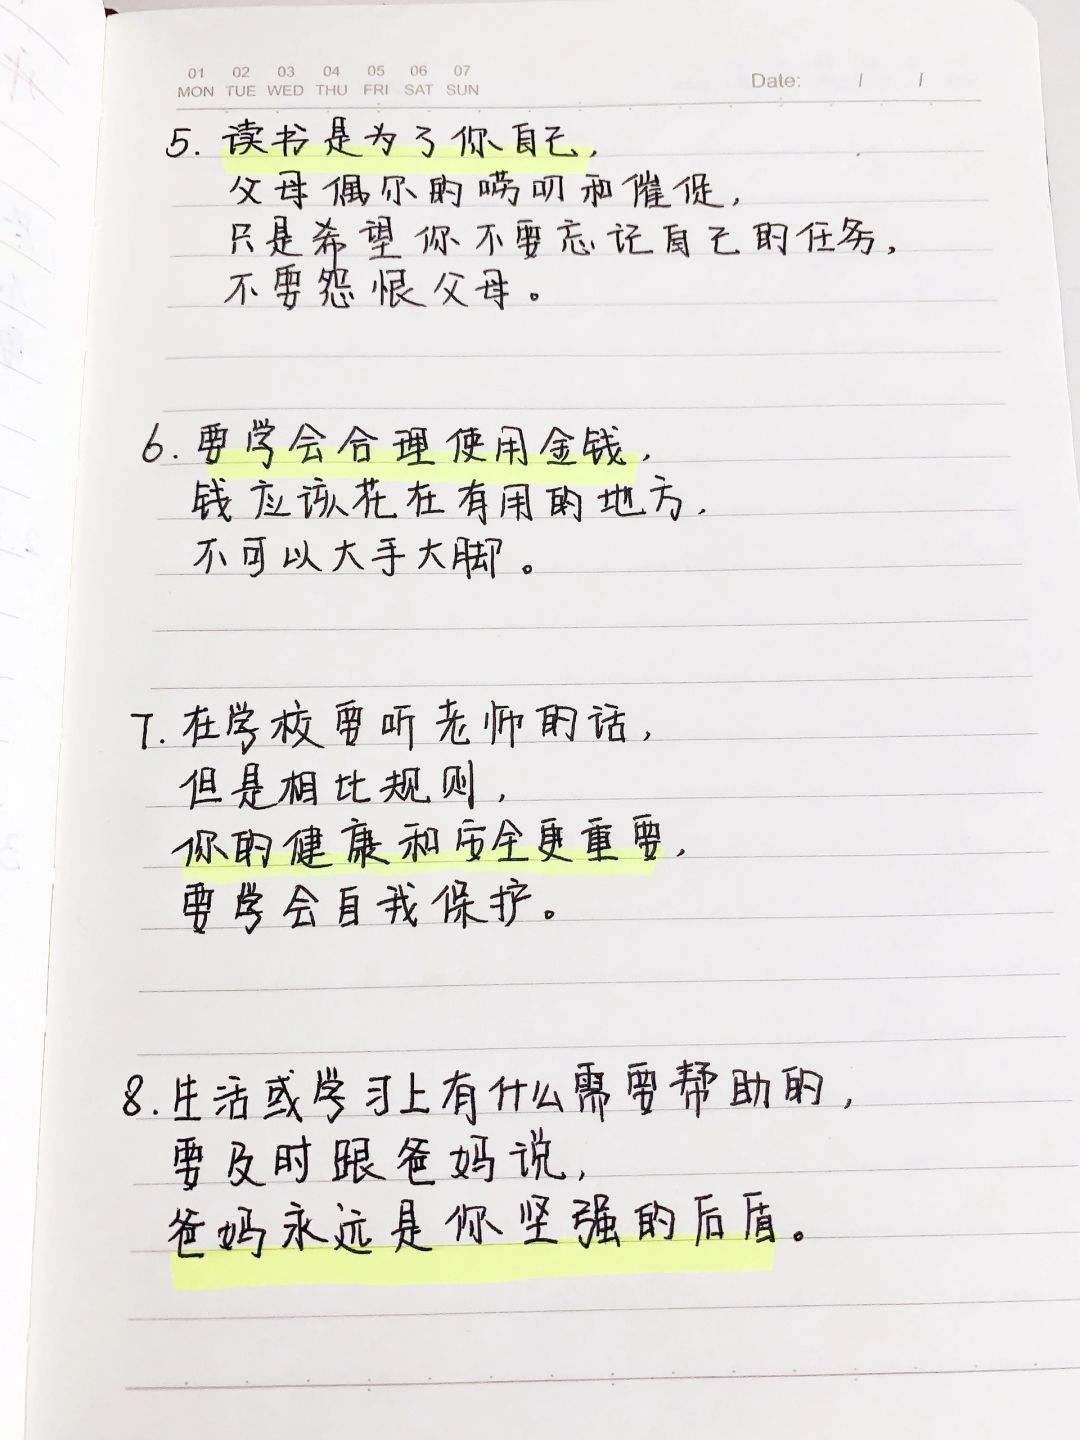 01 02 03 04 05 06 07
MON TUE WED THU FRI SAT SUN
Date: / /
5. 读书是为了你自己,
父母偶尔的唠叨和催促,
只是希望你不要忘记自己的任务,
不要怨恨父母。
6. 要学会合理使用金钱,
钱应该花在有用的地方,
不可以大手大脚。
7. 在学校要听老师的话,
但是相比规则,
你的健康和安全更重要,
要学会自我保护。
8. 生活或学习上有什么需要帮助的,
要及时跟爸妈说,
爸妈永远是你坚强的后盾。